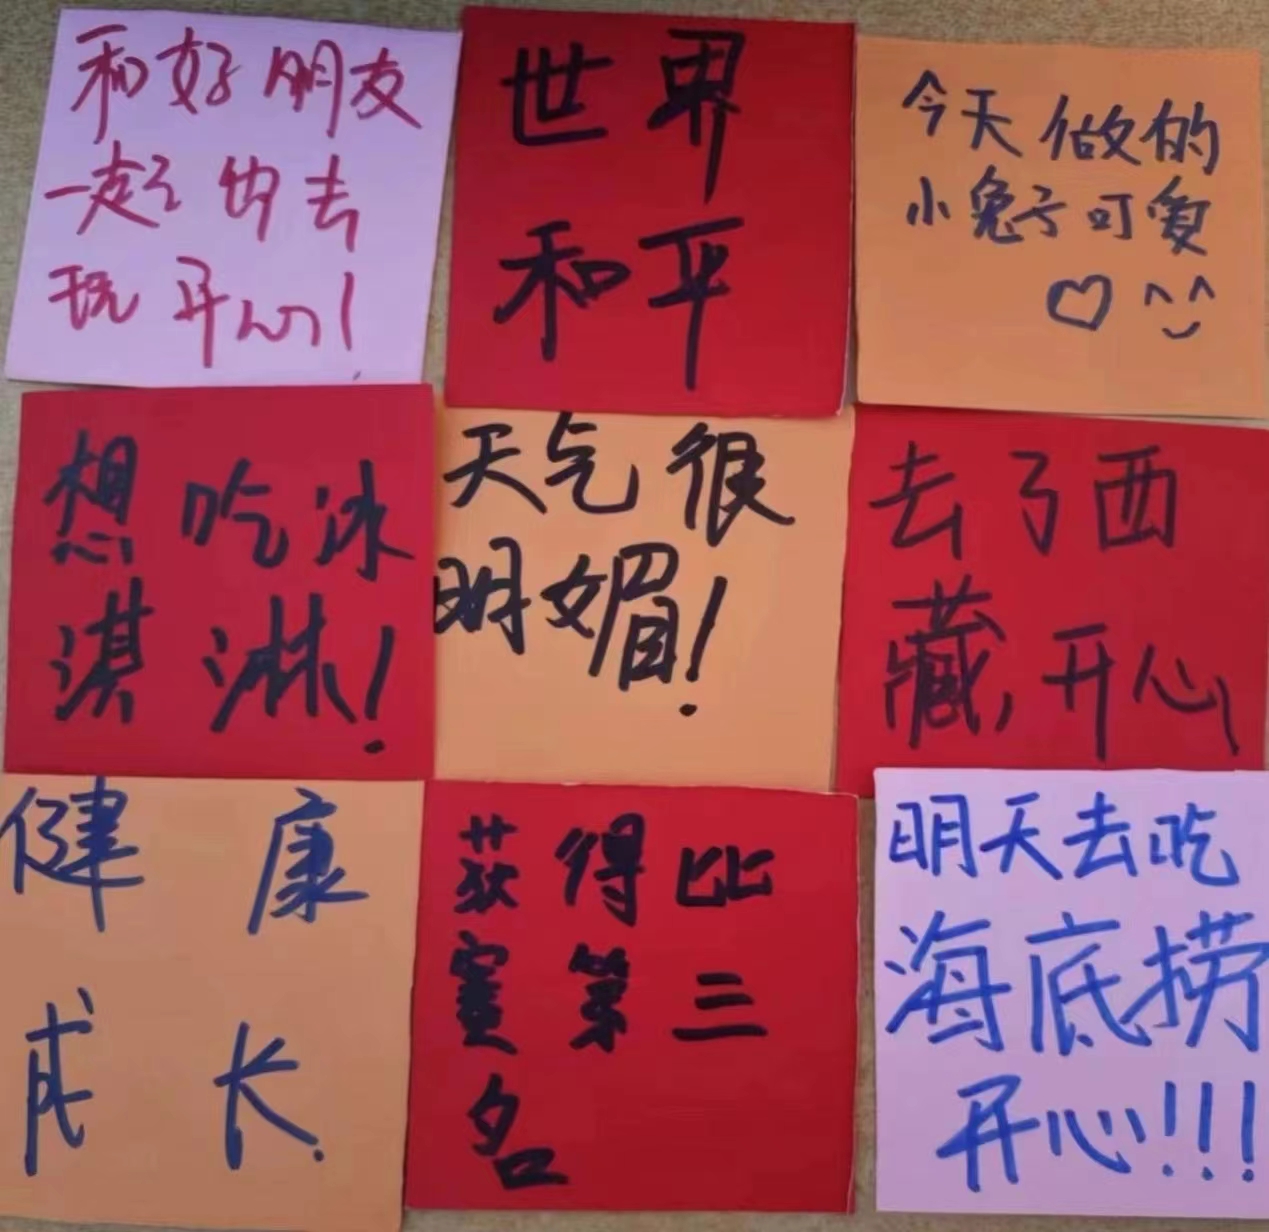 和好朋友
一起出去
玩开心!
世界
和平
今天做的
小兔子可爱
♡ ^_^
想吃冰
淇淋!
天气很
明媚!
去了西
藏,开心
健康
成长
获得比
赛第三
名
明天去吃
海底捞
开心!!!